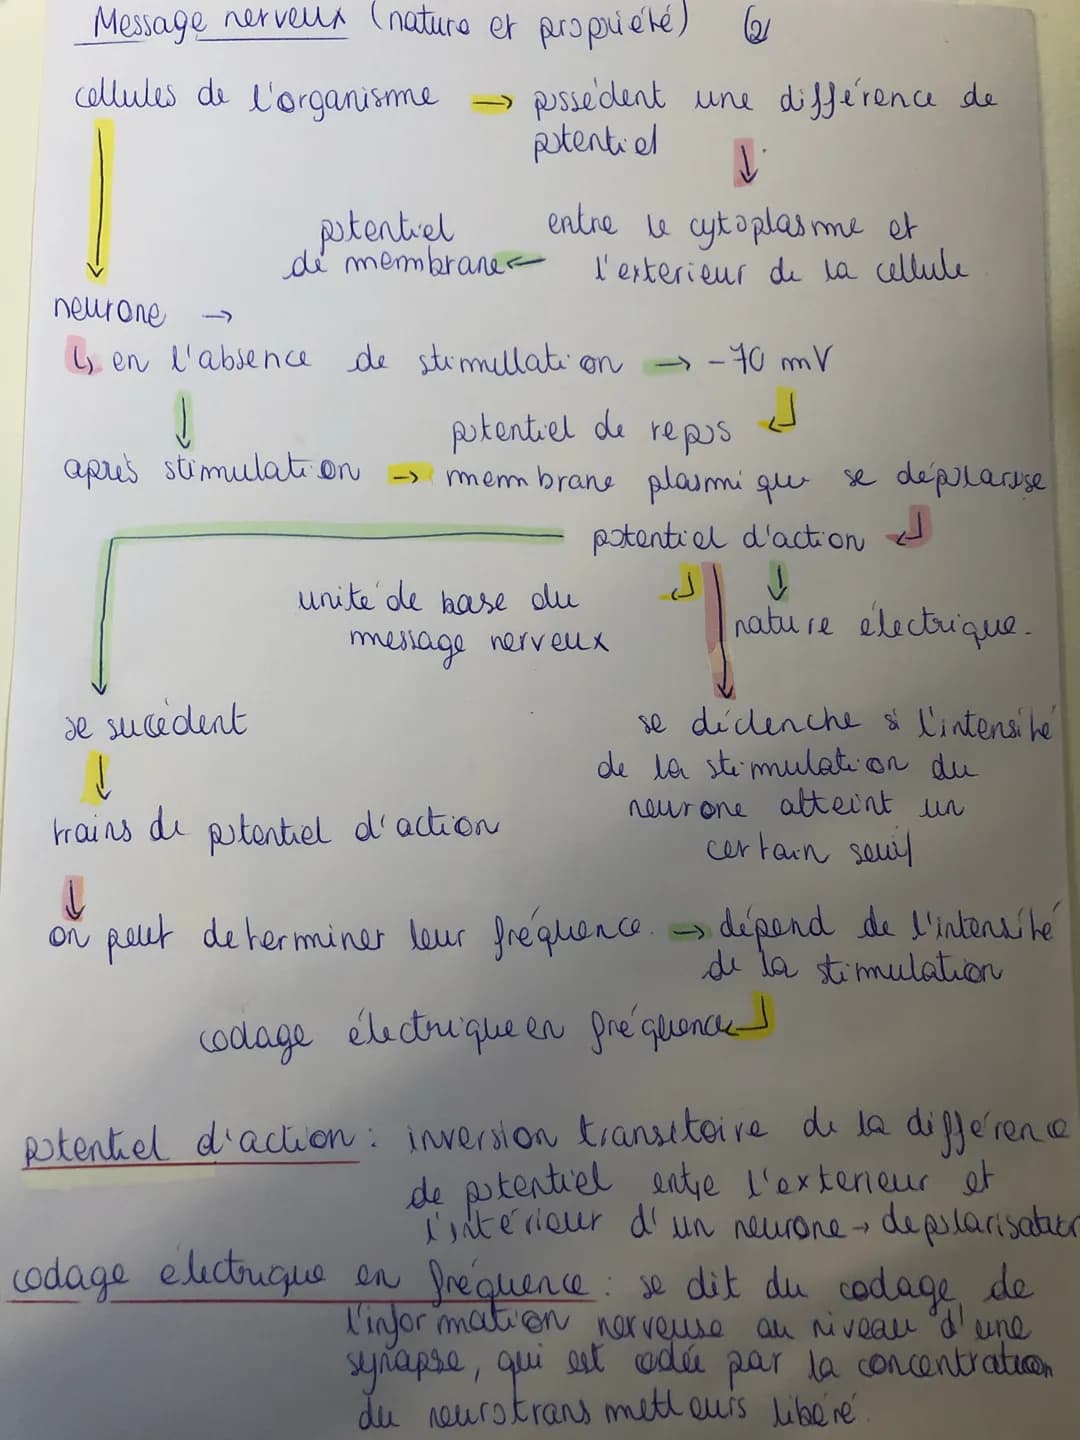 Message nerveux (nature et propriété) ②
cellules de l'organisme → possèdent une différence de
potentiel ↓
potentiel entre le cytoplasme et
de membrane ← l'exterieur de la cellule
neurone →
↳ en l'absence de stimullation → -70 mV
potentiel de repos ↲
après stimulation → membrane plasmique se dépolarise
potentiel d'action ↲
unité de base du
message nerveux nature électrique.
se succèdent se déclenche si l'intensité
de la stimulation du
neurone atteint un
trains de potentiel d'action certain seuil
on peut determiner leur fréquence. → dépend de l'intensité
de la stimulation
codage électrique en fréquence ↲
potentiel d'action : inversion transitoire de la différence
de potentiel entre l'exterieur et
l'intérieur d'un neurone → depolarisation
codage electrique en fréquence : se dit du codage de
l'information nerveuse au niveau d'une
synapse, qui est codée par la concentration
du neurotransmetteurs libéré.